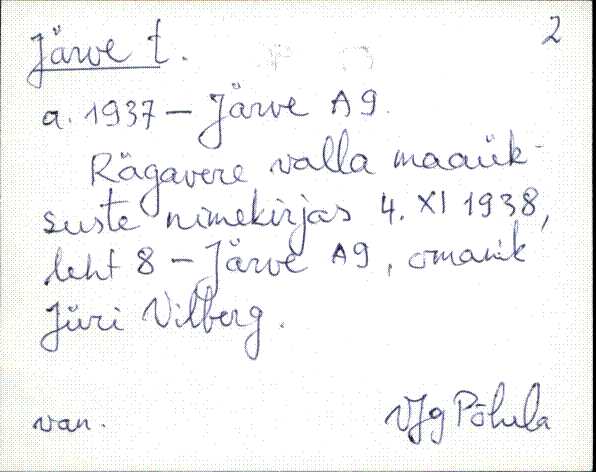 2
Järve t.
a. 1937 – Järve A9.
Rägavere valla maaük-
suste nimekirjas 4. XI 1938,
leht 8 – Järve A9, omanik
Jüri Vilberg.
van.
VJg Põhula